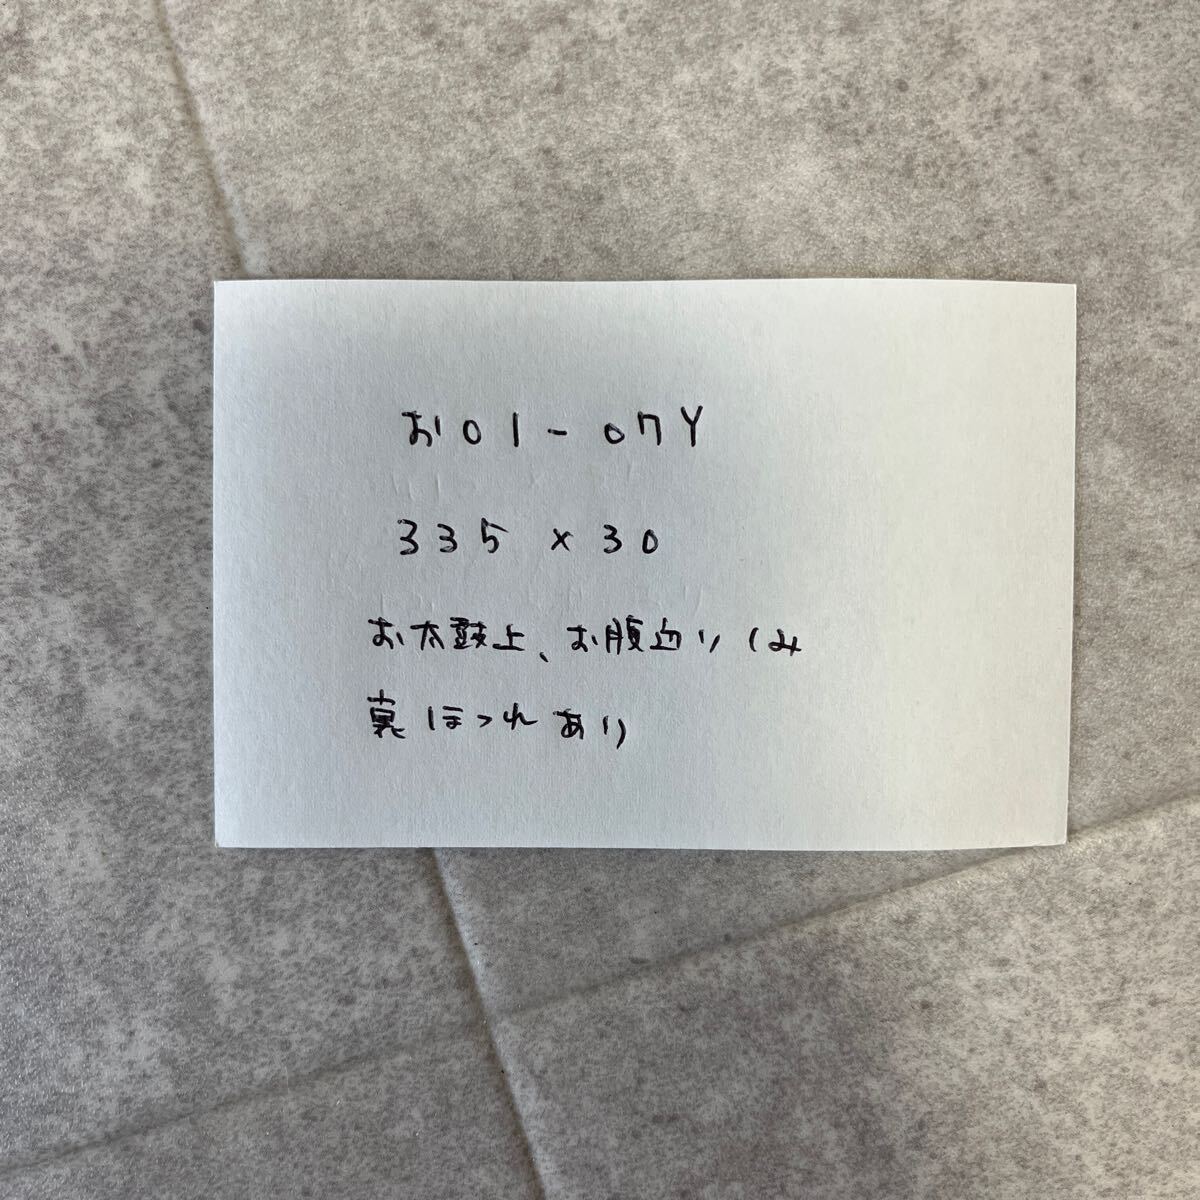 お01-07Y
335×30
お太鼓上、お腹辺りしみ
裏ほつれあり